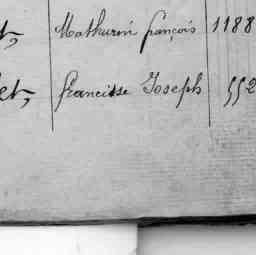 t, Mathurin françois 1188
let, francisse Joseph 552